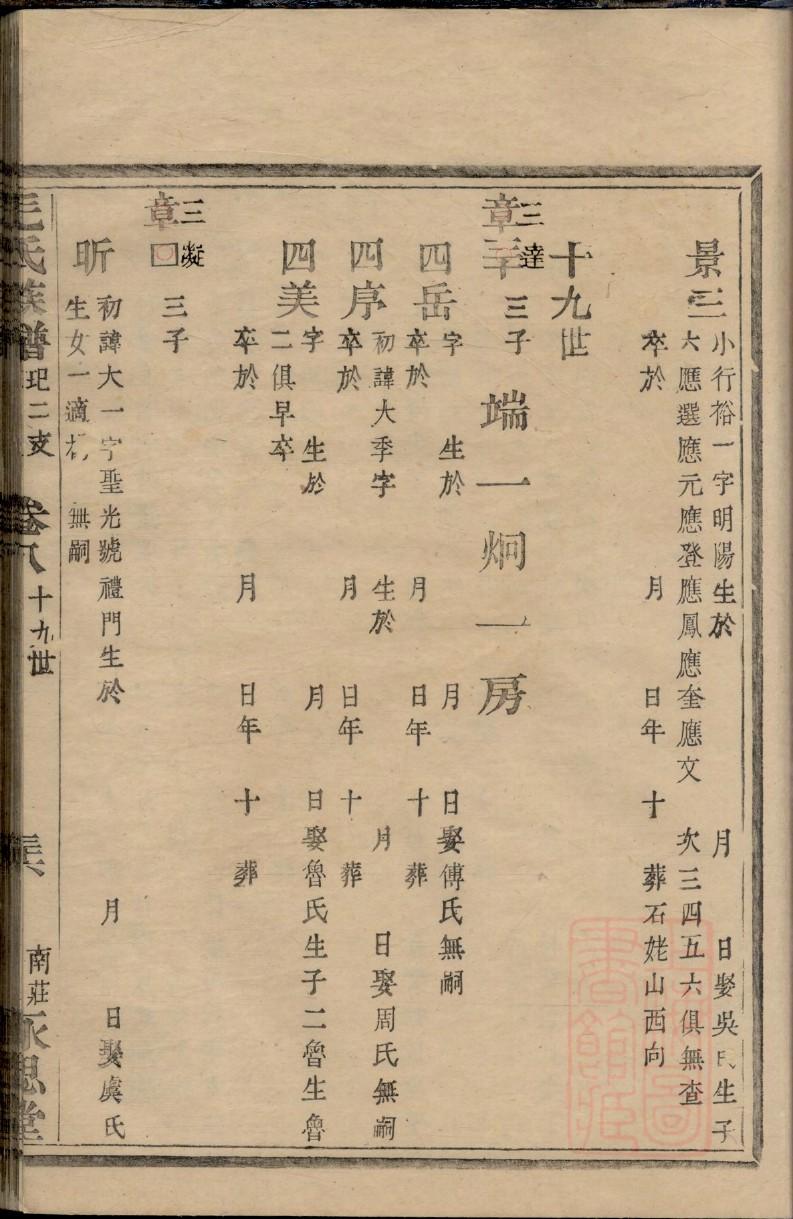 景三 小行裕一字明陽生於 月 日娶吳氏生子
六應選應元應登應鳳應奎應文 次三四五六俱無查
卒於 月 日年 十 葬石姥山西向
十九世
三達
章 三子 端一炯一房
四岳 字 生於 月 日娶傅氏無嗣
卒於 月 日年 十 葬
四序 初諱大季字 生於 月 日娶周氏無嗣
卒於 月 日年 十 葬
四美 字 生於 月 日娶魯氏生子二魯生魯
二俱早卒
卒於 月 日年 十 葬
三凝
章□ 三子
昕 初諱大一字聖光號禮門生於 月 日娶虞氏
生女一適 無嗣
毛氏族譜 二支 卷八 十九世 南莊永思堂